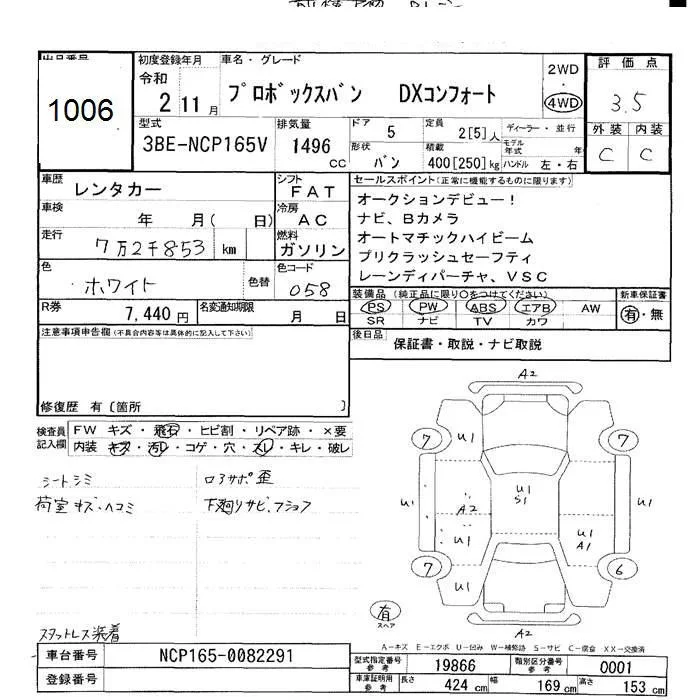 出品番号
1006
初度登録年月
令和
2 11 月
車名・グレード
プロボックスバン DXコンフォート
2WD
・
4WD
評価点
3.5
外装 内装
C C
型式
3BE-NCP165V
排気量
1496 CC
ドア 5
形状 バン
定員 2[5]人
積載 400[250]kg
ディーラー・並行
モデル年式 年
ハンドル 左・右
車歴
レンタカー
シフト
FAT
車検
年 月( 日)
冷房
AC
走行
7万2千853 km
燃料
ガソリン
色
ホワイト
色替
色コード
058
R券
7,440 円
名変通知期限
月 日
セールスポイント(正常に機能するものに限ります)
オークションデビュー!
ナビ、Bカメラ
オートマチックハイビーム
プリクラッシュセーフティ
レーンディパーチャ、VSC
装備品(純正品に限り○をつけてください)
PS PW ABS エアB AW
SR ナビ TV カワ
新車保証書
有・無
後日品
保証書・取説・ナビ取説
注意事項申告欄(不具合内容等は具体的に記入して下さい)
修復歴 有〔箇所 〕
検査員記入欄
FW キズ・飛石・ヒビ割・リペア跡・×要
内装 キズ・汚レ・コゲ・穴・スレ・キレ・破レ
シートシミ
荷室キズ・ヘコミ
ロアサポ歪
下廻りサビ、フショク
スタットレス装着
A2
7 U1 7
U1 U1 S1 U1
A2
U1 U1 A1
7 U1 6
有
スペア
A2
A-キズ E-エクボ U-凹み W-補修跡 S-サビ C-腐食 XX-交換済
車台番号
NCP165-0082291
登録番号
型式指定番号 参考
19866
類別区分番号 参考
0001
車庫証明用 参考
長さ 424 cm
幅 169 cm
高さ 153 cm